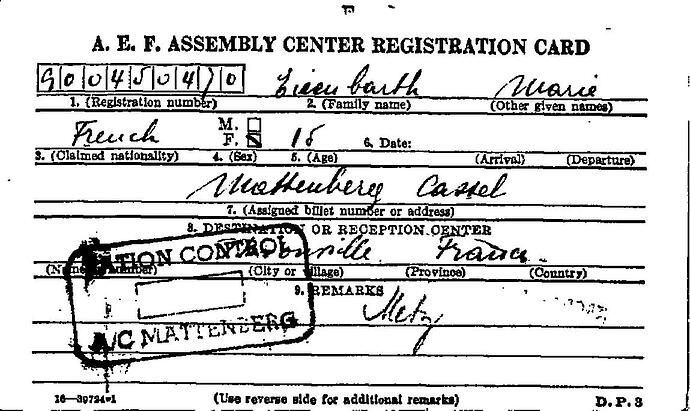 A. E. F. ASSEMBLY CENTER REGISTRATION CARD
Eisenbarth Marie
1. (Registration number) 2. (Family name) (Other given names)
French M. F. 15 6. Date:
3. (Claimed nationality) 4. (Sex) 5. (Age) (Arrival) (Departure)
Mattenberg Cassel
7. (Assigned billet number or address)
8. DESTINATION OR RECEPTION CENTER
France
(City or village) (Province) (Country)
9. REMARKS
Metz
ATION CONTROL
A/C MATTENBERG
16-39724-1 (Use reverse side for additional remarks) D.P. 3